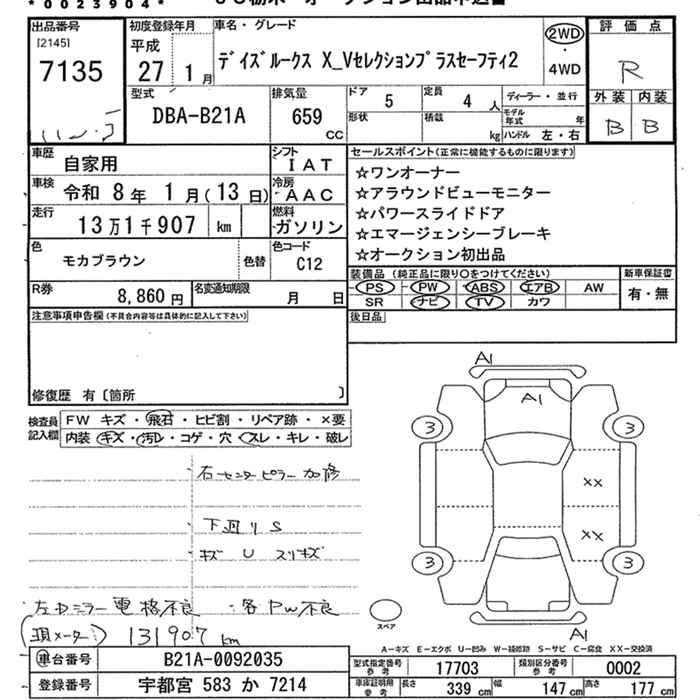 *0023904*
出品番号 初度登録年月 車名・グレード 2WD ・ 4WD 評価点
[2145] 7135
平成 27 1月 デイズルークス X_Vセレクションプラスセーフティ2 R
外装 内装
B B
型式 排気量 ドア 5 定員 4人 ディーラー・並行
DBA-B21A 659 CC 形状 積載 kg モデル年式 年 ハンドル 左・右
車歴 自家用 シフト IAT
車検 令和 8年 1月(13日) 冷房 AAC
走行 13万1千907 km 燃料 ガソリン
色 モカブラウン 色替 色コード C12
R券 8,860円 名変通知期限 月 日
セールスポイント(正常に機能するものに限ります)
☆ワンオーナー
☆アラウンドビューモニター
☆パワースライドドア
☆エマージェンシーブレーキ
☆オークション初出品
装備品 (純正品に限り○をつけてください) 新車保証書
PS PW ABS エアB AW 有・無
SR ナビ TV カワ
後日品
注意事項申告欄(不具合内容等は具体的に記入して下さい)
修復歴 有〔箇所 〕
検査員記入欄 FW キズ・飛石・ヒビ割・リペア跡・×要
内装・キズ・汚レ・コゲ・穴・スレ・キレ・破レ
右センターピラー加修
下廻りS
キズ U スリキズ
左ドミラー電格不良 ・各PW不良
(現メーター) 131907km
A1
A1
3 3
XX
XX
3 3
A1
スペア
A-キズ E-エクボ U-凹み W-補修跡 S-サビ C-腐食 XX-交換済
車台番号 B21A-0092035
登録番号 宇都宮 583 か 7214
型式指定番号 参考 17703 類別区分番号 参考 0002
車庫証明用 参考 長さ 339 cm 幅 147 cm 高さ 177 cm